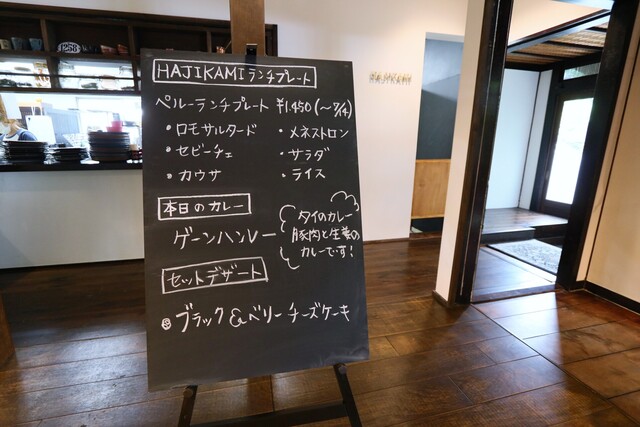 HAJIKAMIランチプレート
ペルーランチプレート ¥1,450(〜9/14)
・ロモサルタード ・メネストロン
・セビーチェ ・サラダ
・カウサ ・ライス
本日のカレー
ゲーンハンレー
タイのカレー
豚肉と生姜の
カレーです!
セットデザート
ブラック&ベリーチーズケーキ
HAJIKAMI
1258